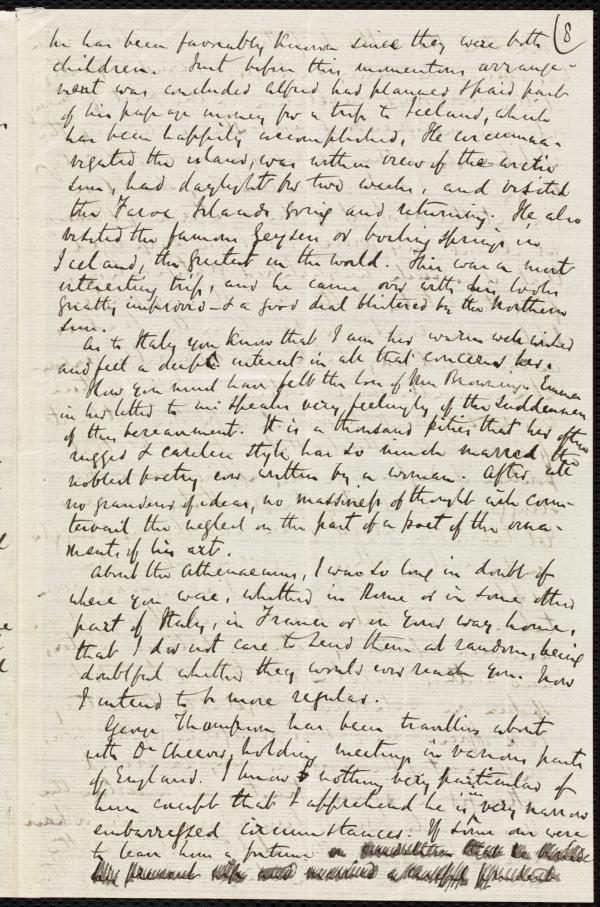 8
he has been favorably known since they were both
children. Just before this momentous arrange-
ment was concluded Alfred had planned & paid part
of his passage money for a trip to Iceland, which
has been happily accomplished. He circumna-
vigated the island, was within view of the arctic
sun, had daylight for two weeks, and visited
the Faroe Islands going and returning. He also
visited the famous Geysers or boiling springs in
Iceland, the greatest in the world. This was a most
interesting trip, and he came over with his looks
greatly improved - & a good deal blistered by the Northern
sun.
As to Italy you know that I am her warm well wisher
and feel a deep interest in all that concerns her.
How you must have felt the loss of Mrs Browning. Emma
in her letter to me speaks very feelingly of the suddenness
of this bereavement. It is a thousand pities that her often
rugged & careless style has so much marred the
noblest poetry ever written by a woman. After all
no grandeur of ideas, no massiness of thought with coun-
tervail the neglect on the part of a poet of the orna-
ments of his art.
About the Athenaeums, I was so long in doubt of
where you were, whether in Rome or in some other
part of Italy, in France or on your way home,
that I did not care to send them at random, being
doubtful whether they would ever reach you. Now
I intend to be more regular.
George Thompson has been travelling about
with Dr Cheever, holding meetings in various parts
of England. I know nothing very particular of
him except that I apprehend he is in very narrow
embarrassed circumstances. If some one were
to leave him a fortune